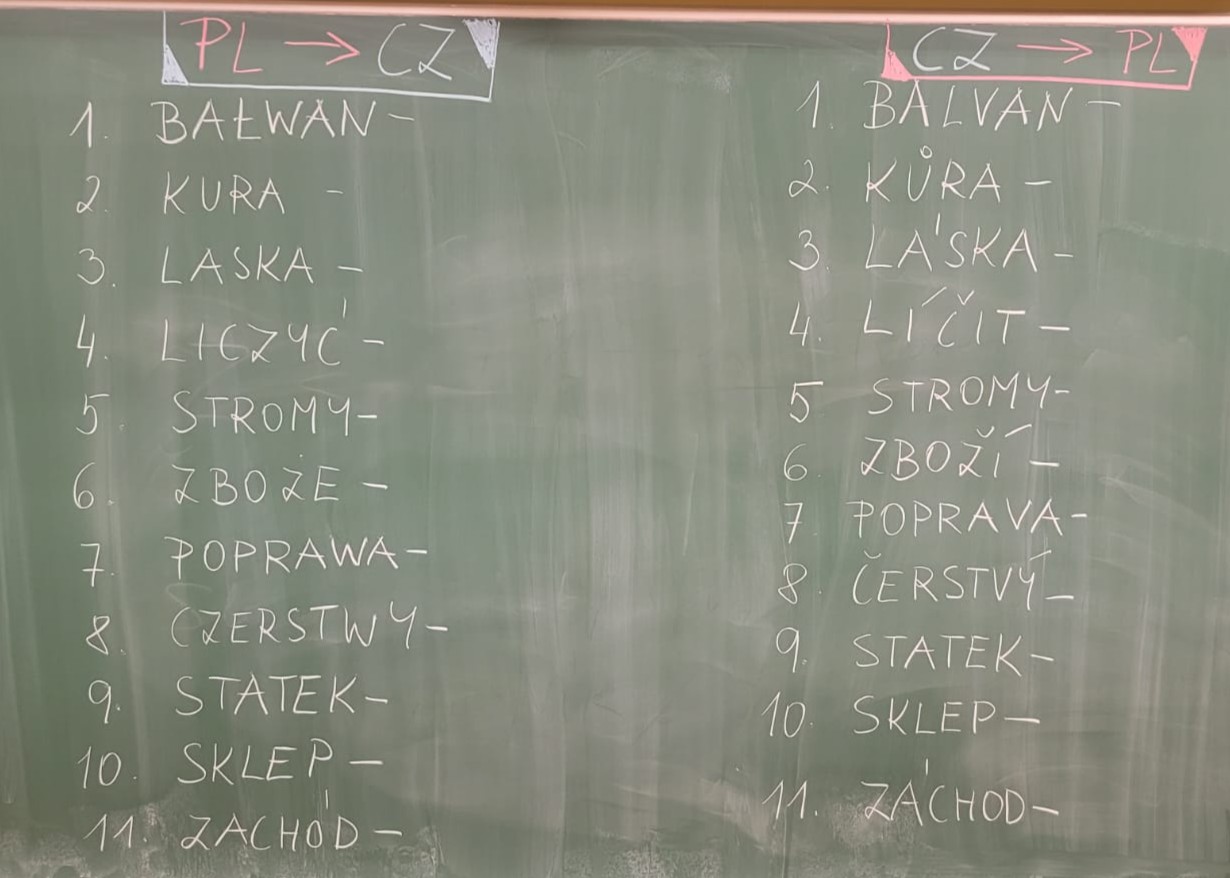 PL → CZ
1. BAŁWAN -
2. KURA -
3. LASKA -
4. LICZYĆ -
5. STROMY -
6. ZBOŻE -
7. POPRAWA -
8. CZERSTWY -
9. STATEK -
10. SKLEP -
11. ZACHÓD -
CZ → PL
1. BALVAN -
2. KŮRA -
3. LÁSKA -
4. LÍČIT -
5 STROMY -
6. ZBOŽÍ -
7 POPRAVA -
8. ČERSTVÝ -
9. STATEK -
10. SKLEP -
11. ZÁCHOD -